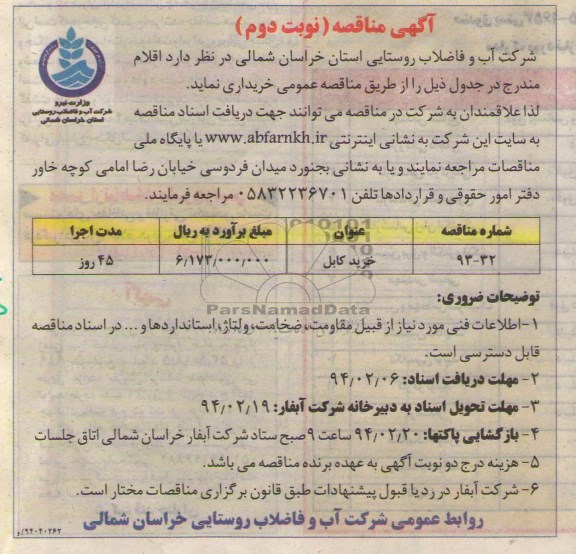 آگهی مناقصه (نوبت دوم)
وزارت نیرو
شرکت آب و فاضلاب روستایی
استان خراسان شمالی
شرکت آب و فاضلاب روستایی استان خراسان شمالی در نظر دارد اقلام
مندرج در جدول ذیل را از طریق مناقصه عمومی خریداری نماید.
لذا علاقمندان به شرکت در مناقصه می توانند جهت دریافت اسناد مناقصه
به سایت این شرکت به نشانی اینترنتی www.abfarnkh.ir یا پایگاه ملی
مناقصات مراجعه نمایند و یا به نشانی بجنورد میدان فردوسی خیابان رضا امامی کوچه خاور
دفتر امور حقوقی و قراردادها تلفن ۰۵۸۳۲۲۳۶۷۰۱ مراجعه فرمایند.
شماره مناقصه عنوان مبلغ برآورد به ریال مدت اجرا
۹۳-۳۲ خرید کابل ۶,۱۷۳,۰۰۰,۰۰۰ ۴۵ روز
ParsNamadData
توضیحات ضروری:
۱-اطلاعات فنی مورد نیاز از قبیل مقاومت، ضخامت، ولتاژ، استانداردها و ... در اسناد مناقصه
قابل دسترسی است.
۲- مهلت دریافت اسناد: ۹۴,۰۲,۰۶
۳- مهلت تحویل اسناد به دبیرخانه شرکت آبفار: ۹۴,۰۲,۱۹
۴- بازگشایی پاکتها: ۹۴,۰۲,۲۰ ساعت ۹ صبح ستاد شرکت آبفار خراسان شمالی اتاق جلسات
۵- هزینه درج دو نوبت آگهی به عهده برنده مناقصه می باشد.
۶- شرکت آبفار در رد یا قبول پیشنهادات طبق قانون برگزاری مناقصات مختار است.
روابط عمومی شرکت آب و فاضلاب روستایی خراسان شمالی
۹۴۰۲۰۲۶۲/و